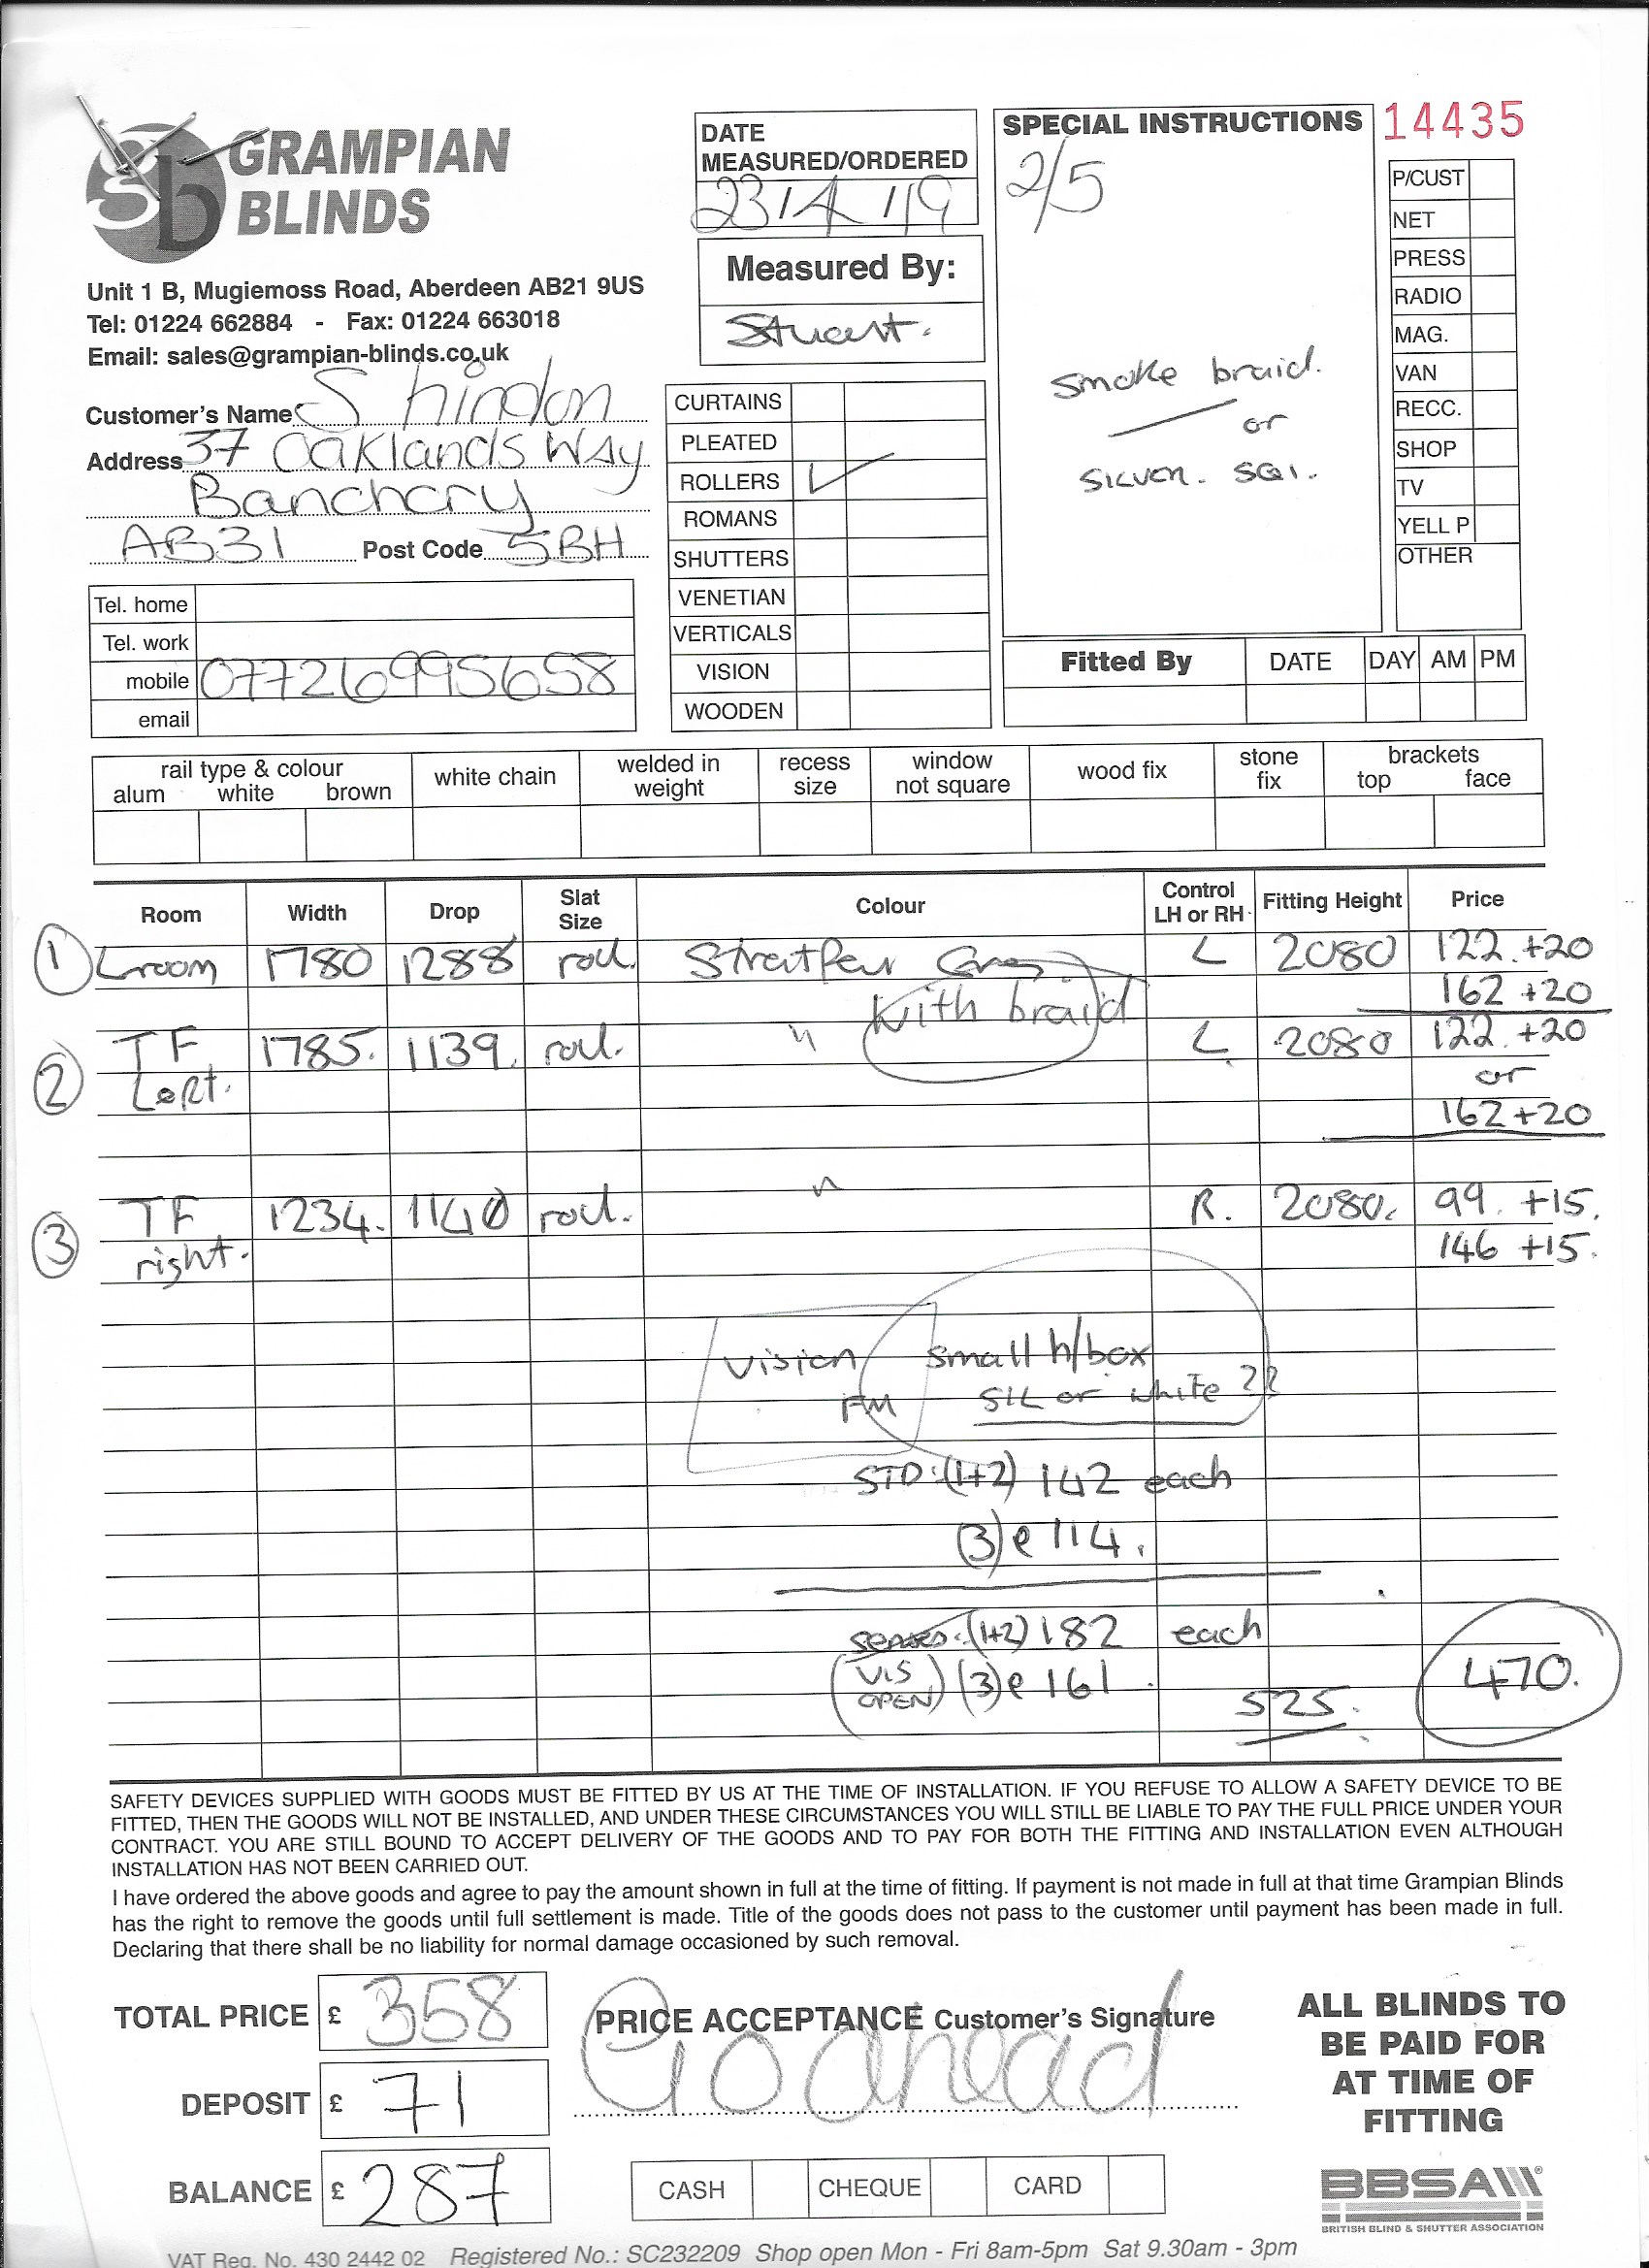 GRAMPIAN
BLINDS
Unit 1 B, Mugiemoss Road, Aberdeen AB21 9US
Tel: 01224 662884 - Fax: 01224 663018
Email: sales@grampian-blinds.co.uk
Customer's Name S hindon
Address 37 Oaklands Way
Banchory
AB31 Post Code 5BH
Tel. home
Tel. work
mobile 07726995658
email
DATE
MEASURED/ORDERED
23/4/19
Measured By:
Stuart.
CURTAINS
PLEATED
ROLLERS ✓
ROMANS
SHUTTERS
VENETIAN
VERTICALS
VISION
WOODEN
SPECIAL INSTRUCTIONS
2/5
smoke braid.
or
SILVER. SQ1.
14435
P/CUST
NET
PRESS
RADIO
MAG.
VAN
RECC.
SHOP
TV
YELL P
OTHER
Fitted By DATE DAY AM PM
rail type & colour
alum white brown
white chain
welded in
weight
recess
size
window
not square
wood fix
stone
fix
brackets
top face
Room Width Drop Slat Size Colour Control LH or RH Fitting Height Price
1 Lroom 1780 1288 roll. Grey L 2080 122.+20
with braid 162 +20
2 TF 1785. 1139. roll. " L 2080 122. +20
Left. or
162+20
3 TF 1234. 1140 roll. " R. 2080. 99. +15.
right. 146 +15.
Vision small h/box
FM SIL or white ??
STD:(1+2) 142 each
(3)@ 114.
senses:(1+2) 182 each
(VIS (3)@ 161.
OPEN) 525. 470.
SAFETY DEVICES SUPPLIED WITH GOODS MUST BE FITTED BY US AT THE TIME OF INSTALLATION. IF YOU REFUSE TO ALLOW A SAFETY DEVICE TO BE
FITTED, THEN THE GOODS WILL NOT BE INSTALLED, AND UNDER THESE CIRCUMSTANCES YOU WILL STILL BE LIABLE TO PAY THE FULL PRICE UNDER YOUR
CONTRACT. YOU ARE STILL BOUND TO ACCEPT DELIVERY OF THE GOODS AND TO PAY FOR BOTH THE FITTING AND INSTALLATION EVEN ALTHOUGH
INSTALLATION HAS NOT BEEN CARRIED OUT.
I have ordered the above goods and agree to pay the amount shown in full at the time of fitting. If payment is not made in full at that time Grampian Blinds
has the right to remove the goods until full settlement is made. Title of the goods does not pass to the customer until payment has been made in full.
Declaring that there shall be no liability for normal damage occasioned by such removal.
TOTAL PRICE £ 358
DEPOSIT £ 71
BALANCE £ 287
PRICE ACCEPTANCE Customer's Signature
Go ahead
CASH CHEQUE CARD
ALL BLINDS TO
BE PAID FOR
AT TIME OF
FITTING
BBSA
BRITISH BLIND & SHUTTER ASSOCIATION
VAT Reg. No. 430 2442 02 Registered No.: SC232209 Shop open Mon - Fri 8am-5pm Sat 9.30am - 3pm